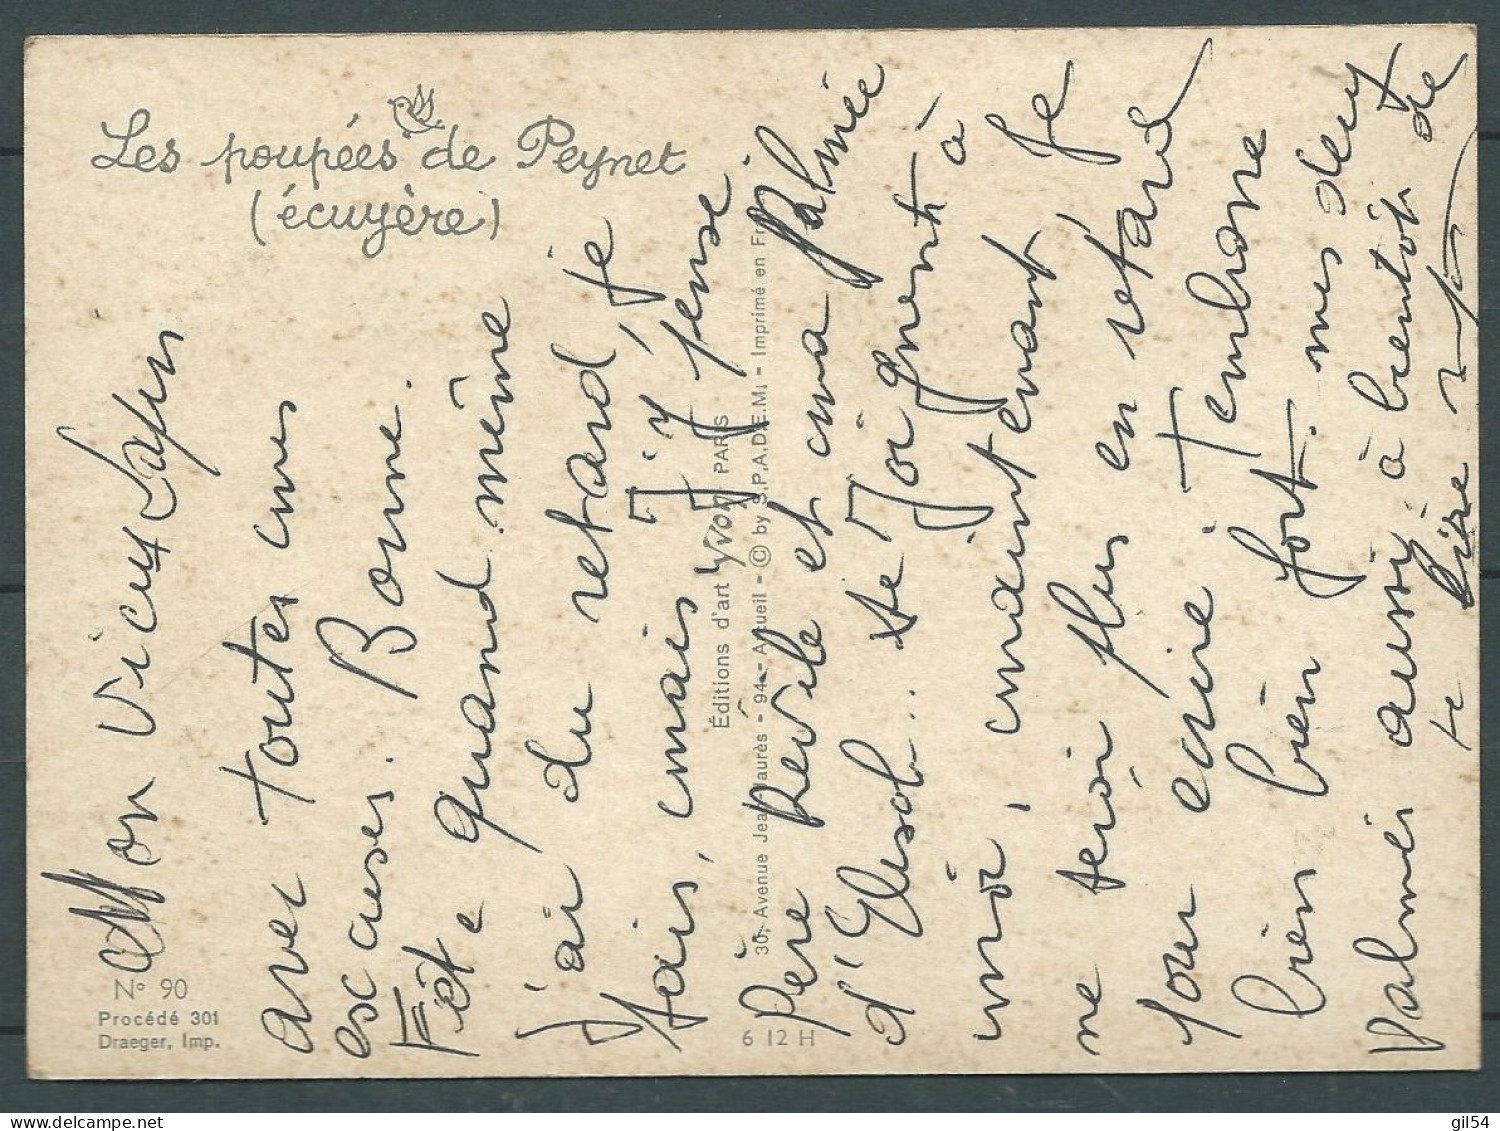 Les poupées de Peynet
(écuyère)
Mon Vieux
avec toutes mes
excuses. Bonne
Fête quand même
j'ai du retard, je
sais, mais j'y pense
Père et ma Palmée
d' se joignent à
moi, maintenant, je
ne serai plus en retard
pour écrire T'embrasse
bien bien fort. mes deux
palmées aussi, à bientôt de
te lire
Éditions d'art Yvon PARIS
30, Avenue Jean Jaurès - 94 - Arcueil - © by S.P.A.D.E.M. - Imprimé en Fr
N° 90
Procédé 301
Draeger, Imp.
6 12 H
gil54